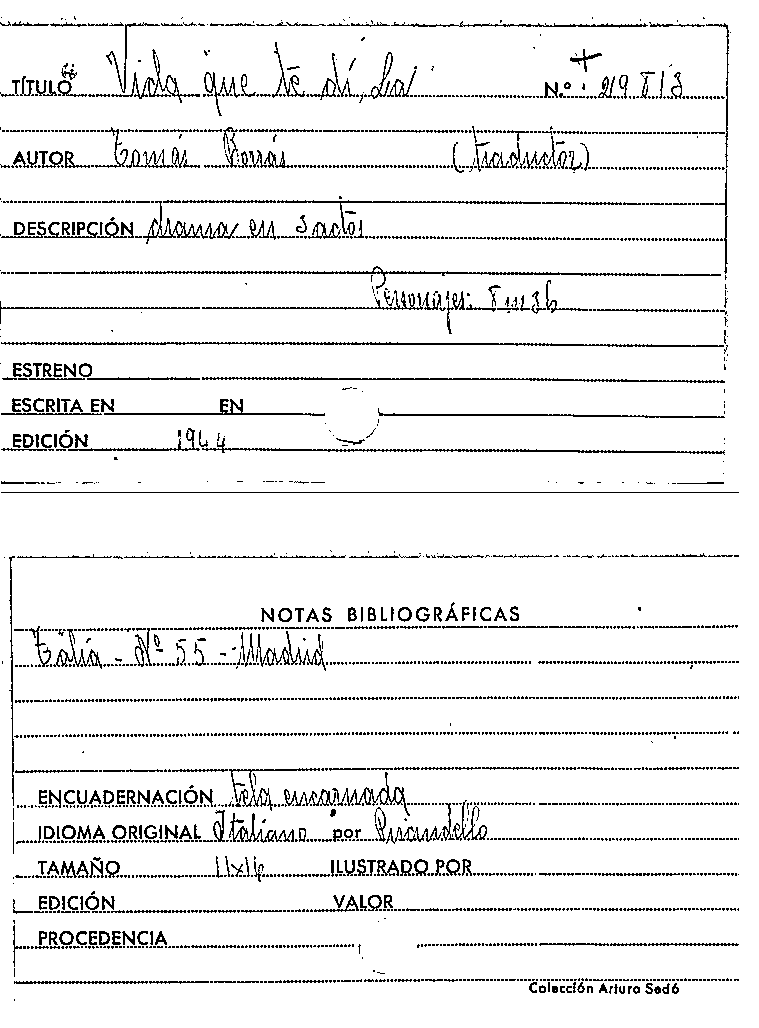 TÍTULO Vida que te dí, La N.º 219813
AUTOR Tomás Borrás (traductor)
DESCRIPCIÓN drama en 3 actos
Personajes:
ESTRENO
ESCRITA EN EN
EDICIÓN 1944
NOTAS BIBLIOGRÁFICAS
Talía - Nº 55 - Madrid
ENCUADERNACIÓN tela encarnada
IDIOMA ORIGINAL Italiano por Pirandello
TAMAÑO 11x16 ILUSTRADO POR
EDICIÓN VALOR
PROCEDENCIA
Colección Arturo Sedó